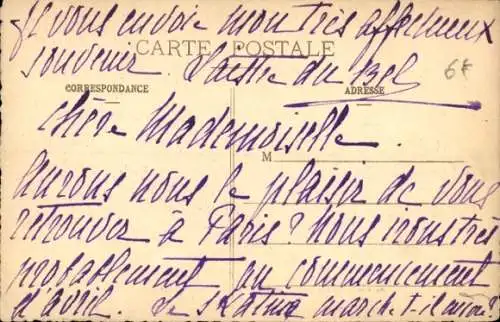 Je vous envoie mon très affectueux
CARTE POSTALE
souvenir. du Bel
6F
CORRESPONDANCE
ADRESSE
Chère Mademoiselle.
M
Aurons nous le plaisir de vous
retrouver à Paris? Nous irons très
probablement au commencement
d'avril. Le marche t-il